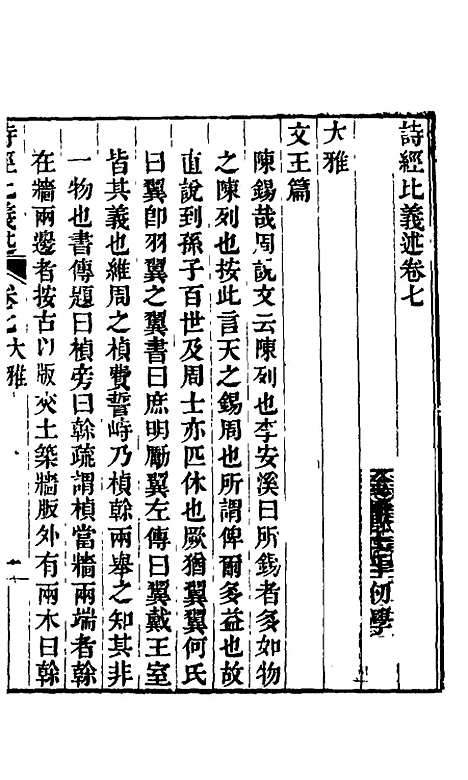 詩經比義述卷七
初學
大雅
文王篇
陳錫哉周說文云陳列也李安溪曰所錫者多如物
之陳列也按此言天之錫周也所謂俾爾多益也故
直說到孫子百世及周士亦匹休也厥猶翼翼何氏
曰翼卽羽翼之翼書曰庶明勵翼左傳曰翼戴王室
皆其義也維周之楨費誓峙乃楨榦兩舉之知其非
一物也書傳題曰楨旁曰榦疏謂楨當牆兩端者榦
在牆兩邊者按古以版夾土築牆版外有兩木曰榦
詩經比義述
卷七大雅
一